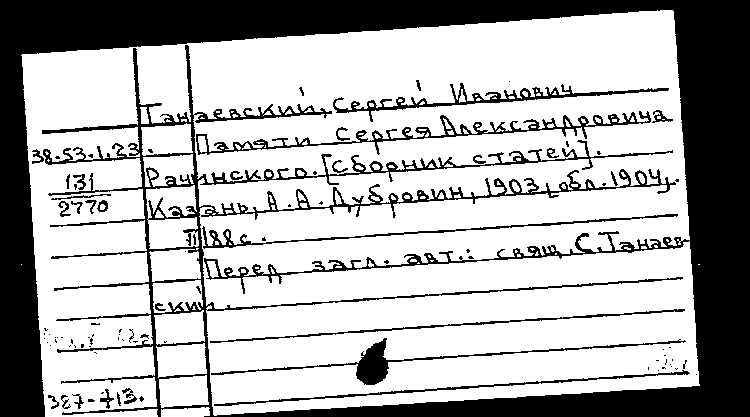 Танаевский, Сергей Иванович
38.53.1.23. Памяти Сергея Александровича
131 Рачинского. [Сборник статей].
2770 Казань, А. А. Дубровин, 1903, [обл. 1904].
II, 188 с.
Перед загл. авт.: свящ. С. Танаев-
ский.
387-413.